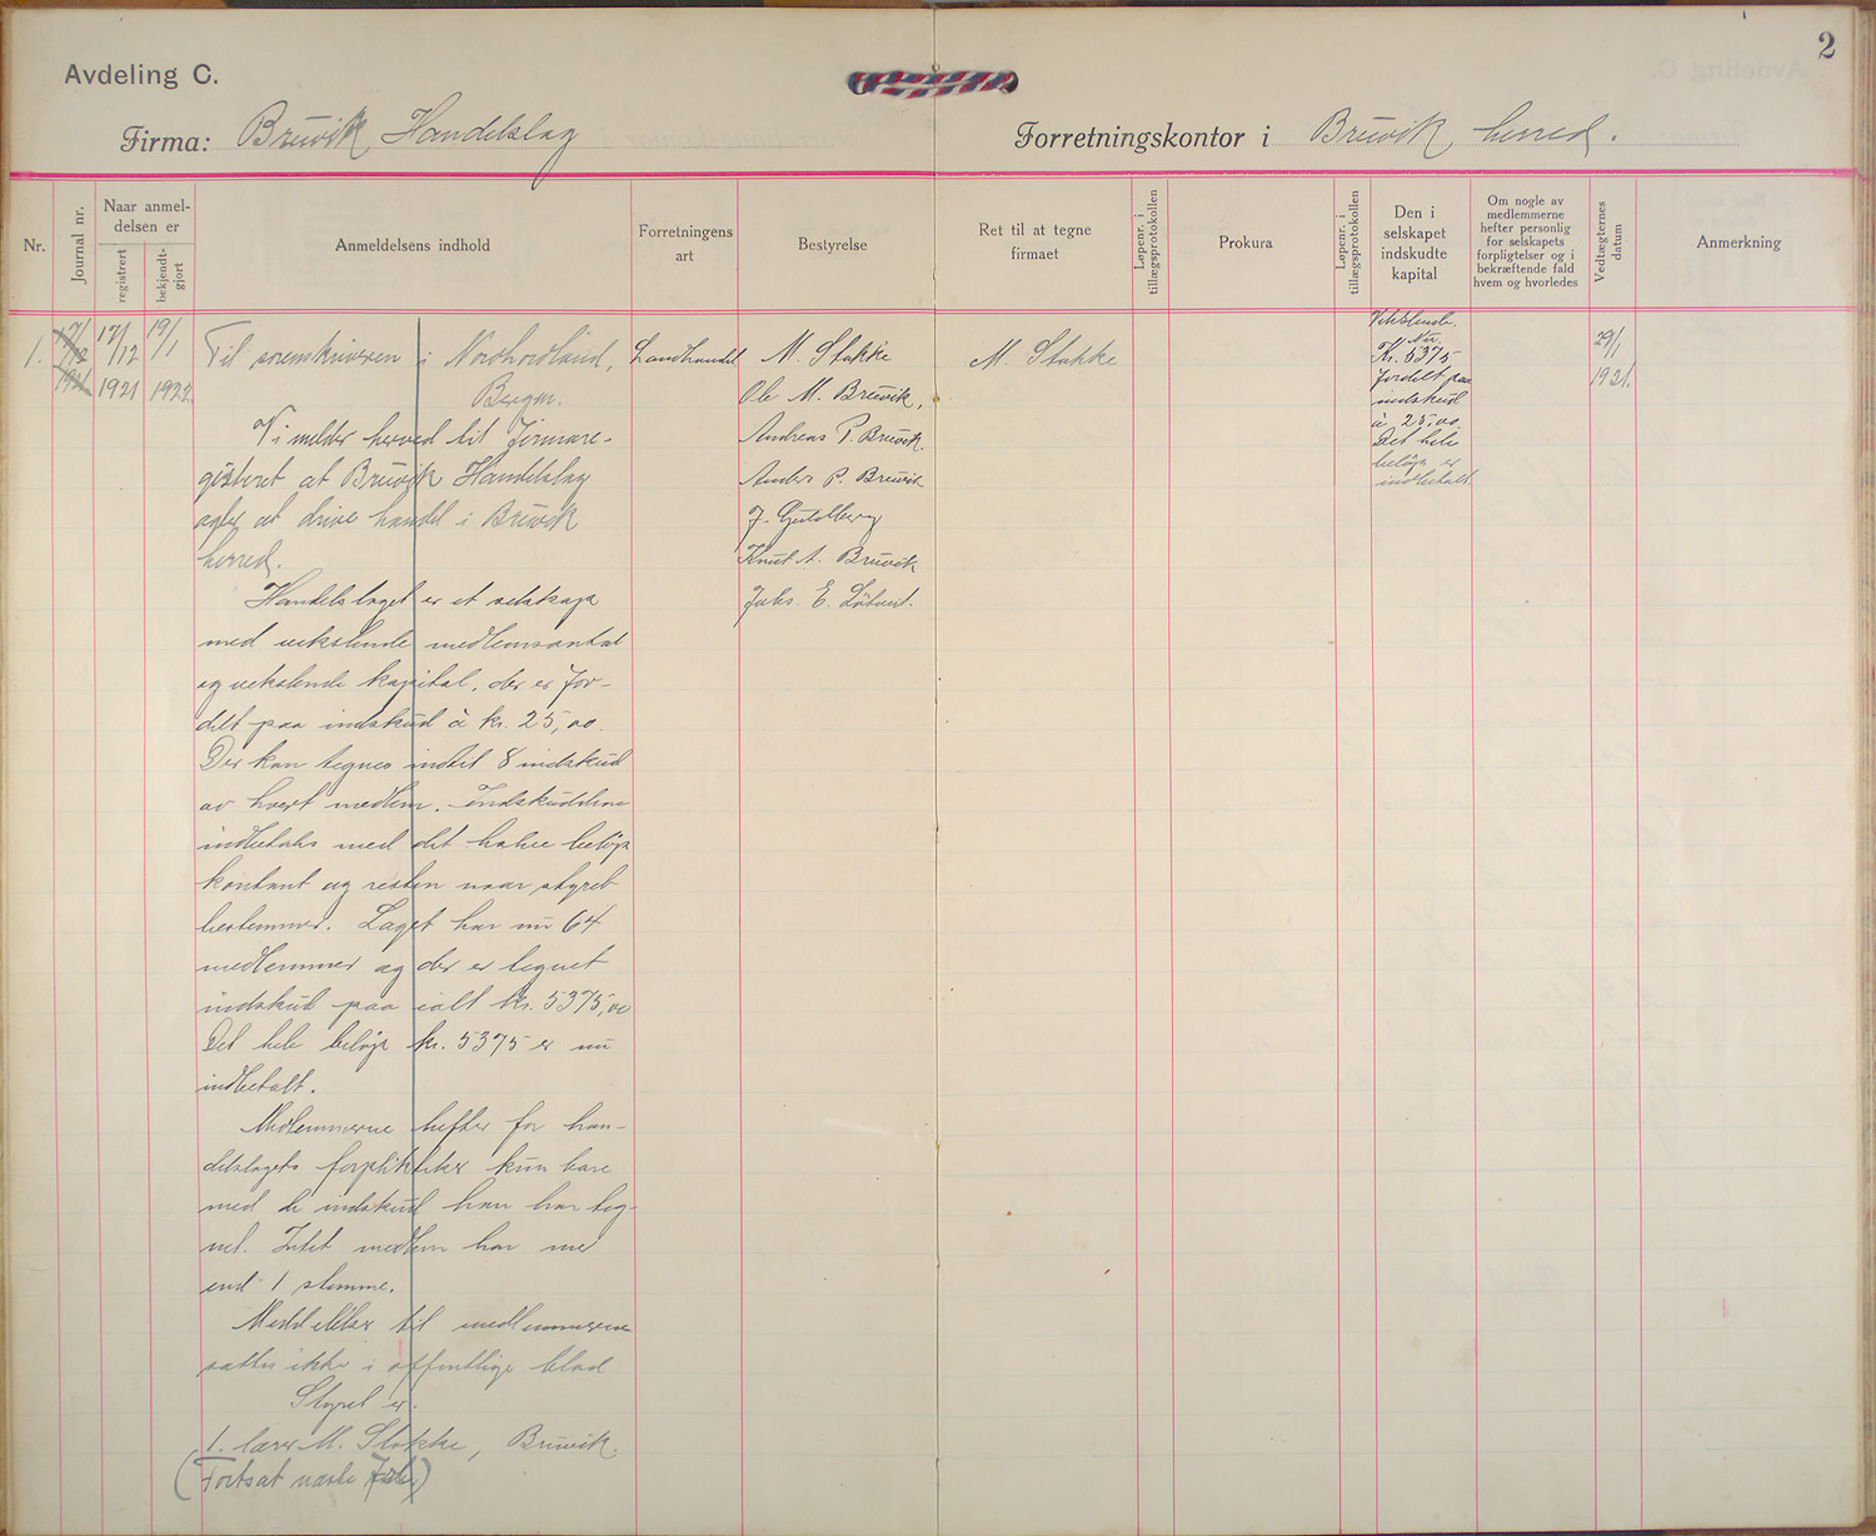 2
Avdeling C.
Firma: Bruvik Handelslag
Forretningskontor i Bruvik herred.
Nr.
Journal nr.
Naar anmel-
delsen er
registrert
bekjendt-
gjort
Anmeldelsens indhold
Forretningens
art
Bestyrelse
Ret til at tegne
firmaet
Løpenr. i
tillægsprotokollen
Prokura
Løpenr. i
tillægsprotokollen
Den i
selskapet
indskudte
kapital
Om nogle av
medlemmerne
hefter personlig
for selskapets
forpligtelser og i
bekræftende fald
hvem og hvorledes
Vedtægternes
datum
Anmerkning
1.
17/12
1921
17/12
1921
19/1
1922
Til sorenskriveren i Nordhordland,
Bergen.
Vi melder herved til firmare-
gisteret at Bruvik Handelslag
agter at drive handel i Bruvik
herred.
Handelslaget er et selskap
med vekslende medlemsantal
og vekslende kapital, der er for-
delt paa indskud à kr. 25,00.
Der kan tegnes indtil 8 indskud
av hvert medlem. Indskuddene
indbetales med det halve beløp
kontant og resten naar styret
bestemmer. Laget har nu 64
medlemmer og der er tegnet
indskud paa ialt kr. 5375,00
Det hele beløp kr. 5375 er nu
indbetalt.
Medlemmerne hefter for han-
delslagets forpliktelser kun bare
med de indskud han har teg-
net. Intet medlem har mer
end 1 stemme.
Meddelelser til medlemmerne
sættes ikke i offentlige blad
Styret er.
1. lærer M. Stokke, Bruvik.
(Fortsat næste side)
Landhandel
M. Stokke
Ole M. Bruvik,
Andreas P. Bruvik.
Anders P. Bruvik
J. Guldberg
Knut A. Bruvik
Johs. E.
M. Stokke
Vekslende.
Nu.
Kr. 5375
fordelt paa
indskud
à 25,00.
Det hele
beløp er
indbetalt
29/1
1921.